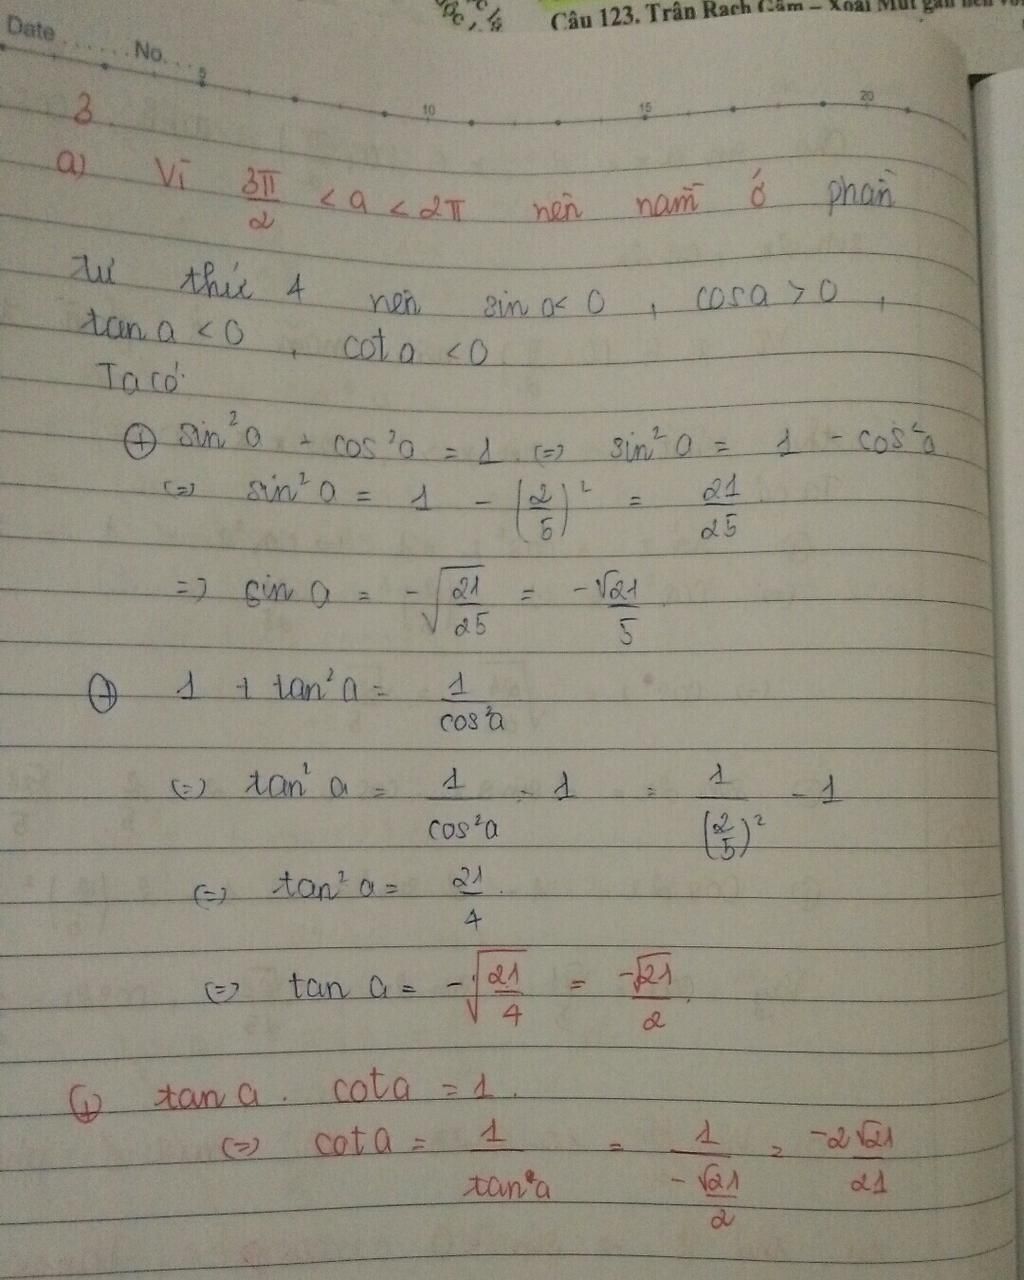 Câu 123. Trân Rạch Gầm – Xoài Mút gắn liền với
Date ....... No. ....
5 10 15 20
3
a) Vì 3π/2 < a < 2π nên nằm ở phần
tư thứ 4 nên sin a < 0 , cosa > 0 ,
tan a < 0 , cot a < 0
Ta có:
⊕ sin²a + cos²a = 1 (=) sin²a = 1 - cos²a
(=) sin²a = 1 - (2/5)² = 21/25
=) sin a = -√(21/25) = -√21/5
⊕ 1 + tan²a = 1/cos²a
(=) tan²a = 1/cos²a - 1 = 1/(2/5)² - 1
(=) tan²a = 21/4
(=) tan a = -√(21/4) = -√21/2
⊕ tan a . cot a = 1.
(=) cot a = 1/tan a = 1/(-√21/2) = -2√21/21